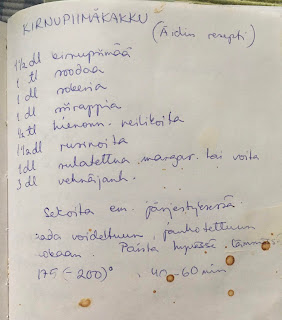 KIRNUPIIMÄKAKKU
(Äidin resepti)
1½ dl kirnupiimää
1 tl soodaa
1 dl sokeria
1 dl siirappia
½ tl hienonn. neilikoita
1½ dl rusinoita
1 dl sulatettua margar. tai voita
3 dl vehnäjauh.
Sekoita em. järjestyksessä
kaada voideltuun, jauhotettuun
vokaan. Paista hyvässä lämmössä
175 (-200)° 40-60 min